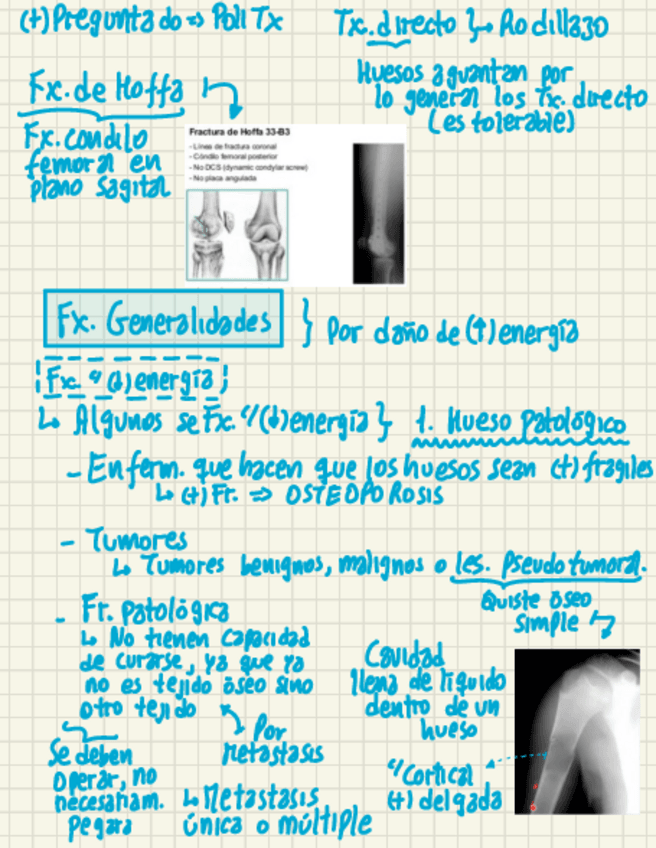 (+) Preguntado => Poli Tx
Tx. directo } Rodillazo
Huesos aguantan por
lo general los Tx. directo
(es tolerable)
Fx. de Hoffa
Fx. cóndilo
femoral en
plano sagital
Fractura de Hoffa 33-B3
- Línea de fractura coronal
- Cóndilo femoral posterior
- No DCS (dynamic condylar screw)
- No placa angulada
Fx. Generalidades } Por daño de (↑) energía
Fx. c/ (↓) energía
↳ Algunos se Fx. c/ (↓) energía } 1. Hueso Patológico
- Enferm. que hacen que los huesos sean (+) fragiles
↳ (+) Fr. => OSTEOPOROSIS
- Tumores
↳ Tumores benignos, malignos o les. Pseudotumoral.
Quiste óseo
simple
- Fr. patológica
↳ No tienen capacidad
de curarse, ya que ya
no es tejido óseo sino
otro tejido
Por
metastasis
↳ Metastasis
única o múltiple
Se deben
operar, no
necesariam.
pegara
Cavidad
llena de líquido
dentro de un
hueso
c/ Cortical
(+) delgada